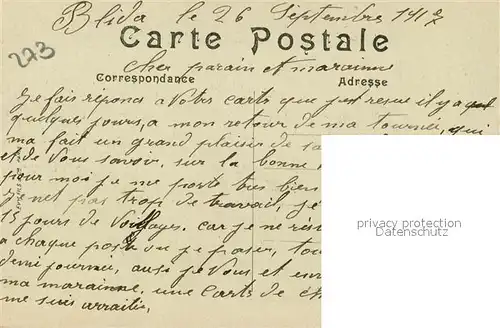 Blida le 26 Septembre 1917
273
Carte Postale
Cher parain et marainne
Correspondance
Adresse
Je fais répons a votre carts que j'est resue il y a
quelques jours, a mon retour de ma tournée, qui
ma fait un grand plaisir de
et de Vous savoir, sur la bonne
pour moi je me porte très bien
Je net pas trop de travail, je
13 jours de Voyages. car je ne
a chaque poste ou je passer,
demi journée, ausi je Vous et
ma marainne, une Carts de
me suis arraitée,
privacy protection
Datenschutz